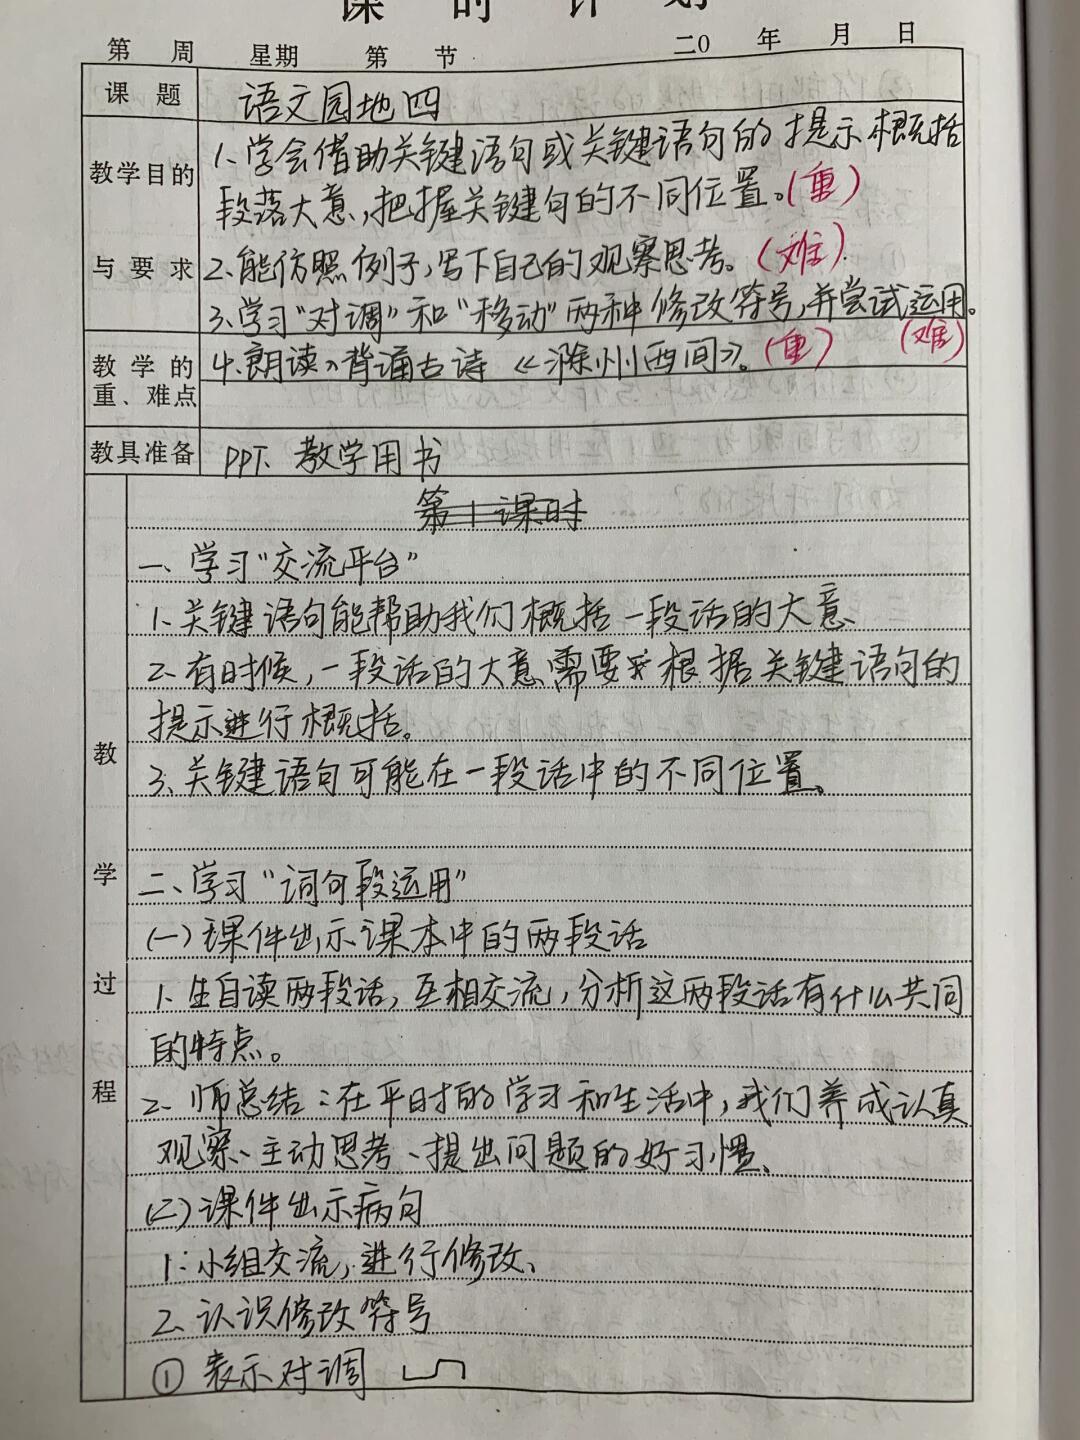 课 时 计 划
第 周 星期 第 节 二0 年 月 日
课 题 语文园地四
教学目的与要求
1、学会借助关键语句或关键语句的提示概括
段落大意,把握关键句的不同位置。(重)
2、能仿照例子,写下自己的观察思考。(难)
3、学习“对调”和“移动”两种修改符号,并尝试运用。
(难)
教学的重、难点
4、朗读、背诵古诗《滁州西间》。(重)
教具准备 PPT、教学用书
第1课时
一、学习“交流平台”
1、关键语句能帮助我们概括一段话的大意、
2、有时候,一段话的大意需要根据关键语句的
提示进行概括。
3、关键语句可能在一段话中的不同位置、
教学过程
二、学习“词句段运用”
(一)课件出示课本中的两段话
1、生自读两段话,互相交流,分析这两段话有什么共同
的特点。
2、师总结:在平时的学习和生活中,我们养成认真
观察、主动思考、提出问题的好习惯、
(二)课件出示病句
1:小组交流,进行修改、
2、认识修改符号
① 表示对调